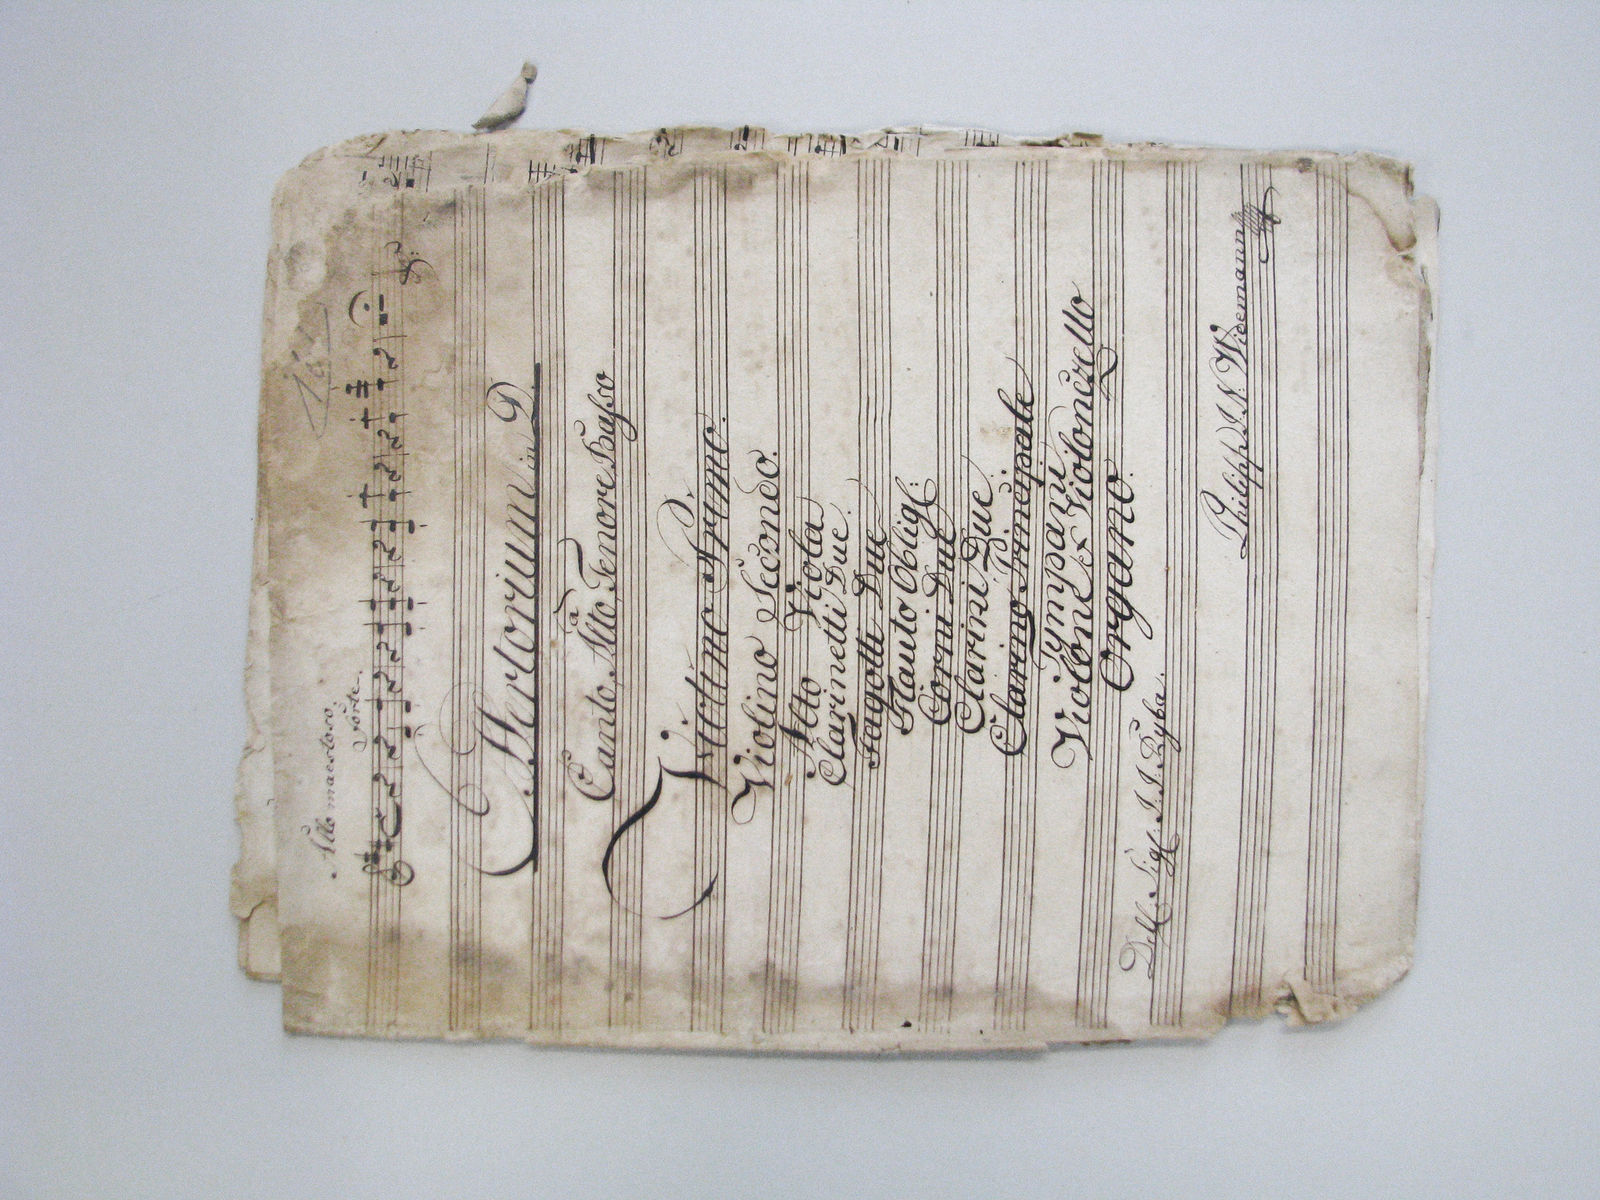 Allo maestoso.
Forte.
Offertorium in D.
à
Canto, Alto Tenore Basso
Violino Primo.
Violino Secondo.
Alto Viola
Clarinetti Due.
Fagotti Due
Flauto Oblig:
Corni Due
Clarini Due.
Clarino Principale
Tympani.
Violone & Violoncello
Organo.
Dell. Sigl. J. J. Ryba.
Philipp J. N. Widemann